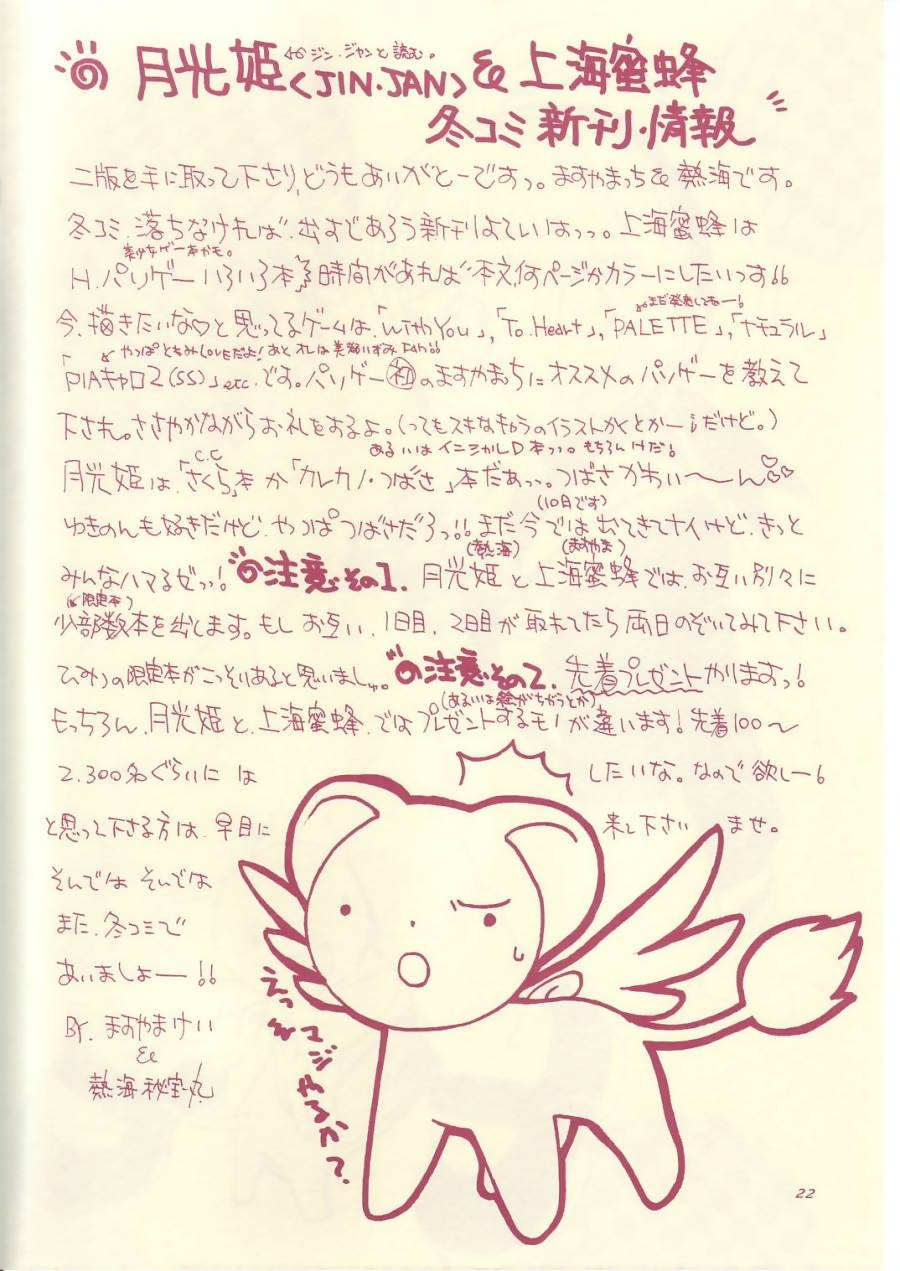 ←ジン・ジャンと読む。
月光姫<JIN・JAN>& 上海蜜蜂
冬コミ新刊・情報
二版を手に取って下さり、どうもありがとーですっ。ますやままっち&熱海です。
冬コミ、落ちなければ、出すであろう新刊よていはっっ。上海蜜蜂は
美少女ゲー本かも。
H.パソゲーいろいろ本 時間があれば本文何ページかカラーにしたいっす!!
まだ発売してねー!
今、描きたいな♡と思ってるゲームは、「With You」,「To Heart」,「PALETTE」,「ナチュラル」
↙やっぱともみLOVEだよ!あと オレは美樹いずみ FAN!!
「PIAキャロ2(SS)」etc.です。パソゲー㊙初のますやままっちにオススメのパソゲーを教えて
下され。ささやかながらお礼をするよ。(ってもスキなキャラのイラストかくとかー!だけど。)
あるいはイニシャルD本っっ。もちろんけだ!
C.C
月光姫は、「さくら」本か「カレカノ・つばさ」本だぁっっ。つばさかわいい〜ん♡♡♡
(10月です)
ゆきのんも好きだけど、やっぱつばさだろっ!!まだ今では出てきてナイけど、きっと
(熱海) (ますやま)
みんなハマるぜっ!注意その1.月光姫と上海蜜蜂では、お互い別々に
(↙限定本)
少部数本を出します。もしお互い、1日目、2日目が取れてたら両日のぞいてみて下さい。
ひみつの限定本がこっそりあると思いましゅ。注意その2.先着プレゼントがありますっ!
(あるいは絵がちがうとか)
もっちろん、月光姫と、上海蜜蜂、ではプレゼントするモノが違います!先着100〜
2.300名ぐらいには したいな。なので欲しー!
と思って下さる方は、早目に 来て下さいませ。
そんではそんでは
また、冬コミで
あいましょー!!
By. ますやまけい
&
熱海秘宝丸
えっ マジやるか?
22